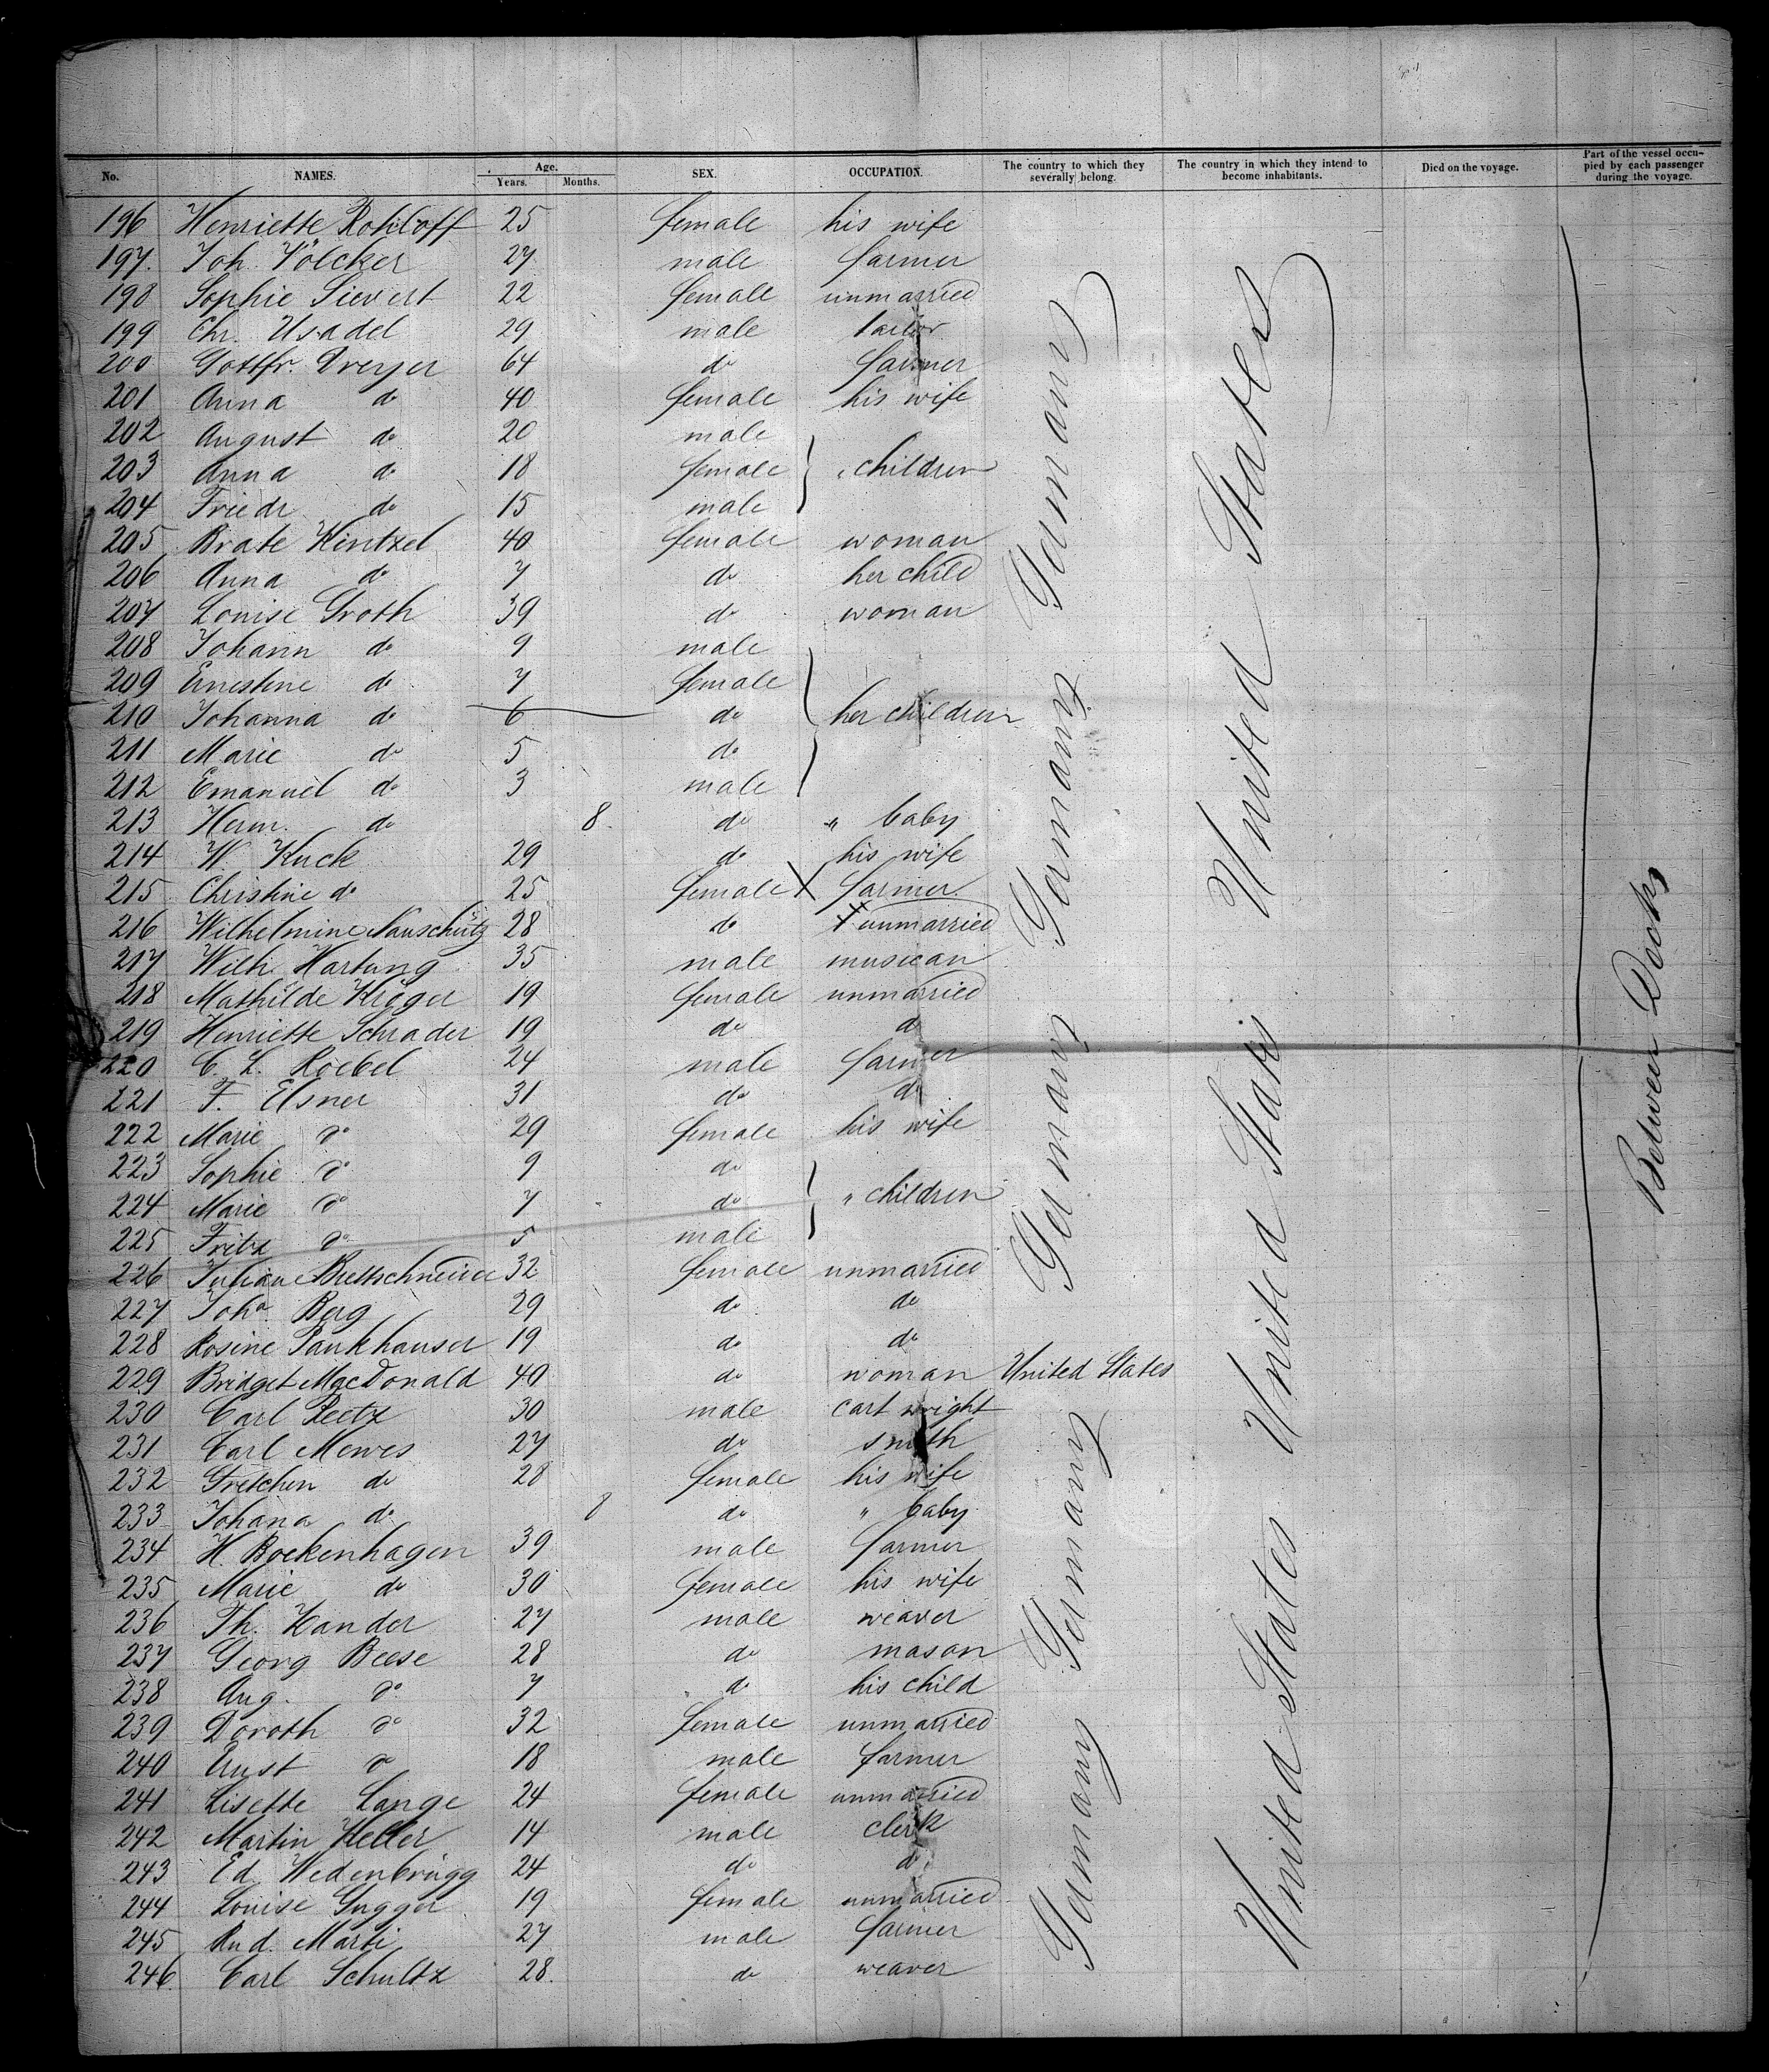 No. NAMES. Age. Years. Months. SEX. OCCUPATION. The country to which they severally belong. The country in which they intend to become inhabitants. Died on the voyage. Part of the vessel occupied by each passenger during the voyage.
196 Henriette Rohloff 25 female his wife
197. Joh. Völcker 27 male farmer
198 Sophie Sievert 22 female unmarried
199 Chr. Usadel 29 male tailor
200 Gottfr. Dreyer 64 do farmer
201 Anna do 40 female his wife
202 August do 20 male
203 Anna do 18 female " children
204 Friedr do 15 male
205 Brate Kintzel 40 female woman
206 Anna do 7 do her child
207 Louise Groth 39 do woman
208 Johann do 9 male
209 Ernestine do 7 female
210 Johanna do 6 do her children
211 Marie do 5 do
212 Emanuel do 3 male
213 Herm. do 8. do " baby
214 W Kuck 29 do his wife
215 Christine do 25 female farmer.
216 Wilhelmine Nauschütz 28 do unmarried
217 Wilh. Hartung 35 male musican
218 Mathilde Krüger 19 female unmarried
219 Henriette Schrader 19 do do
220 C. L. Roebel 24 male farmer
221 F. Elsner 31 do do
222 Marie do 29 female his wife
223 Sophie do 9 do
224 Marie do 7 do " children
225 Fritz do 5 male
226 Juliane Bretschneider 32 female unmarried
227 Joha. Berg 29 do do
228 Rosine Pankhauser 19 do do
229 Bridget MacDonald 40 do woman United States
230 Carl Peetz 30 male cart wright
231 Carl Mewes 27 do smith
232 Gretchen do 28 female his wife
233 Johana do 8 do " baby
234 H. Bockenhagen 39 male farmer
235 Marie do 30 female his wife
236 Th. Xander 27 male weaver
237 Georg Beese 28 do mason
238 Aug. do 7 do his child
239 Doroth do 32 female unmarried
240 Ernst do 18 male farmer
241 Lisette Lange 24 female unmarried
242 Martin Keller 14 male clerk
243 Ed. Wedenbrügg 24 do do
244 Louise Gugger 19 female unmarried
245 Rud. Marti 27 male farmer
246. Carl Schultz 28. do weaver
Germany Germany Germany Germany Germany Germany
United States United States United States
Between Decks